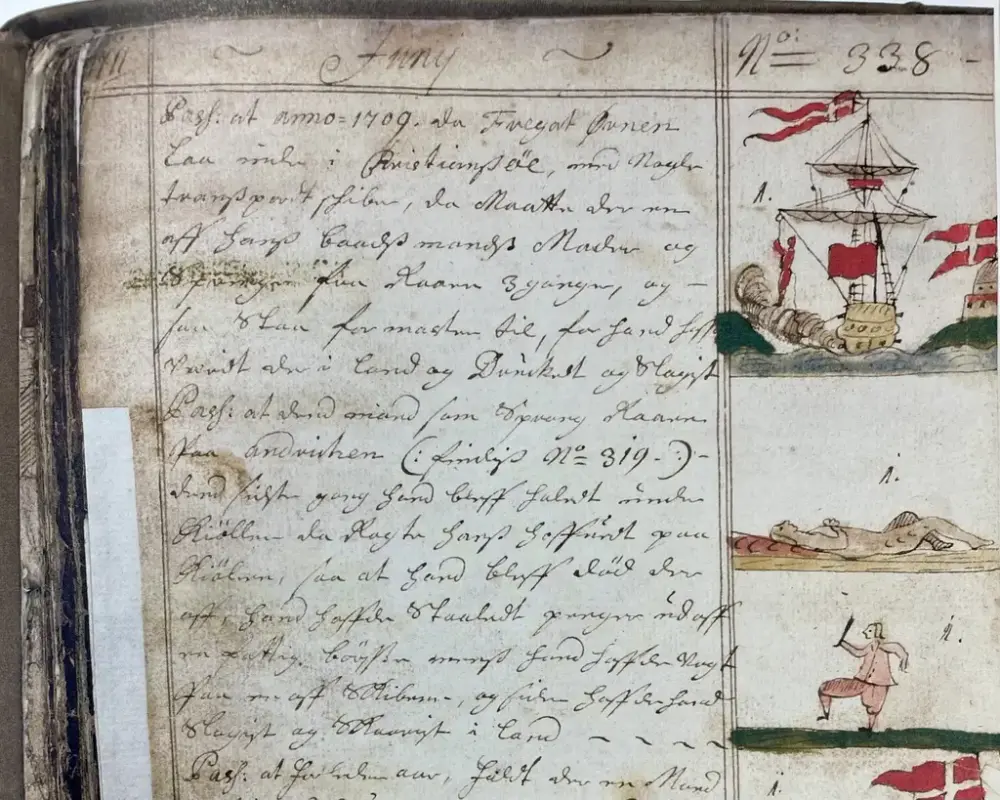 Junij
No: 338
Pass: at anno=1709. da Fregat Ørnen
Laa inde i Kristiansøe, med Nogle
transport schibe, da Maatte der en
aff hans baadsmands Mader og
Springer fra Raaen 3 gange, og -
saa Staa for masten til, for hand haffde
Værit der i land og Druckedt og Slagist
Pass: at dend mand som Sprang Raaen
Paa andrichen (: findis No 319 - :) -
dend sidste gang hand bleff haledt under
Kiöllen da Ragte hans hoffuedt paa
Kiölen, saa at hand bleff död der
aff, hand haffde Staaledt penge ud aff
en fattig bösse mens hand haffde Vagt
Paa en aff Skibene, og siden haffde hand
Slagist og i land
Pass: at aar, holdt der en Mand
1.
1.
2.
1.